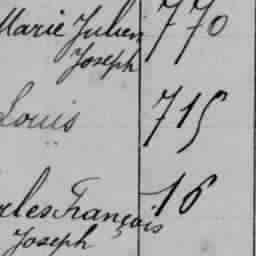 Marie Julien 770
Joseph
Louis 715
rles François 16
Joseph